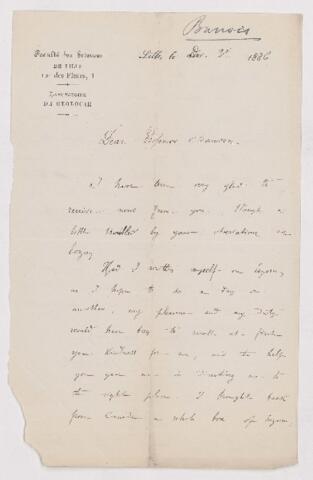 Barrois
Faculté des Sciences
DE LILLE
rue des Fleurs, 1
LABORATOIRE
DE GEOLOGIE
Lille, le Dec. 9. 1886
Dear Professor Dawson.
I have been very glad to
receive news from you, though a
little troubled by your observations on
Had I written myself on
as I hope to do a day or
another, my pleasure and my duty
would have been to
your kindness for me, and the help
you gave me in directing me to
the right place. I brought back
from Canada a whole box of